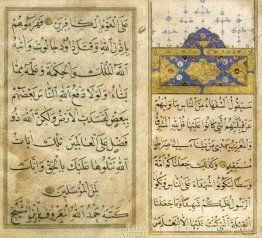 سَيَقُولُ السُّفَهَاءُ مِنَ النَّاسِ مَا وَلّٰيهُمْ
عَنْ قِبْلَتِهِمُ الَّتِي كَانُوا عَلَيْهَا قُلْ لِلّٰهِ
الْمَشْرِقُ وَالْمَغْرِبُ يَهْدِي مَنْ يَشَاءُ اِلَى صِرَاطٍ
مُسْتَقِيمٍ وَكَذٰلِكَ جَعَلْنَاكُمْ اُمَّةً
وَسَطًا لِتَكُونُوا شُهَدَاءَ عَلَى النَّاسِ وَيَكُونَ
الرَّسُولُ عَلَيْكُمْ شَهِيدًا وَمَا جَعَلْنَا
الْقِبْلَةَ الَّتِي كُنْتَ عَلَيْهَا اِلَّا لِنَعْلَمَ
عَلَى الْقَوْمِ الْكَافِرِينَ فَهَزَمُوهُمْ
بِاِذْنِ اللّٰهِ وَقَتَلَ دَاوُدُ جَالُوتَ وَاٰتٰيهُ
اللّٰهُ الْمُلْكَ وَالْحِكْمَةَ وَعَلَّمَهُ مِمَّا
يَشَاءُ وَلَوْلَا دَفْعُ اللّٰهِ النَّاسَ بَعْضَهُمْ
بِبَعْضٍ لَفَسَدَتِ الْاَرْضُ وَلٰكِنَّ اللّٰهَ ذُو
فَضْلٍ عَلَى الْعَالَمِينَ تِلْكَ اٰيَاتُ
اللّٰهِ نَتْلُوهَا عَلَيْكَ بِالْحَقِّ وَاِنَّكَ
لَمِنَ الْمُرْسَلِينَ
كتبه حمد الله المعروف بابن الشيخ